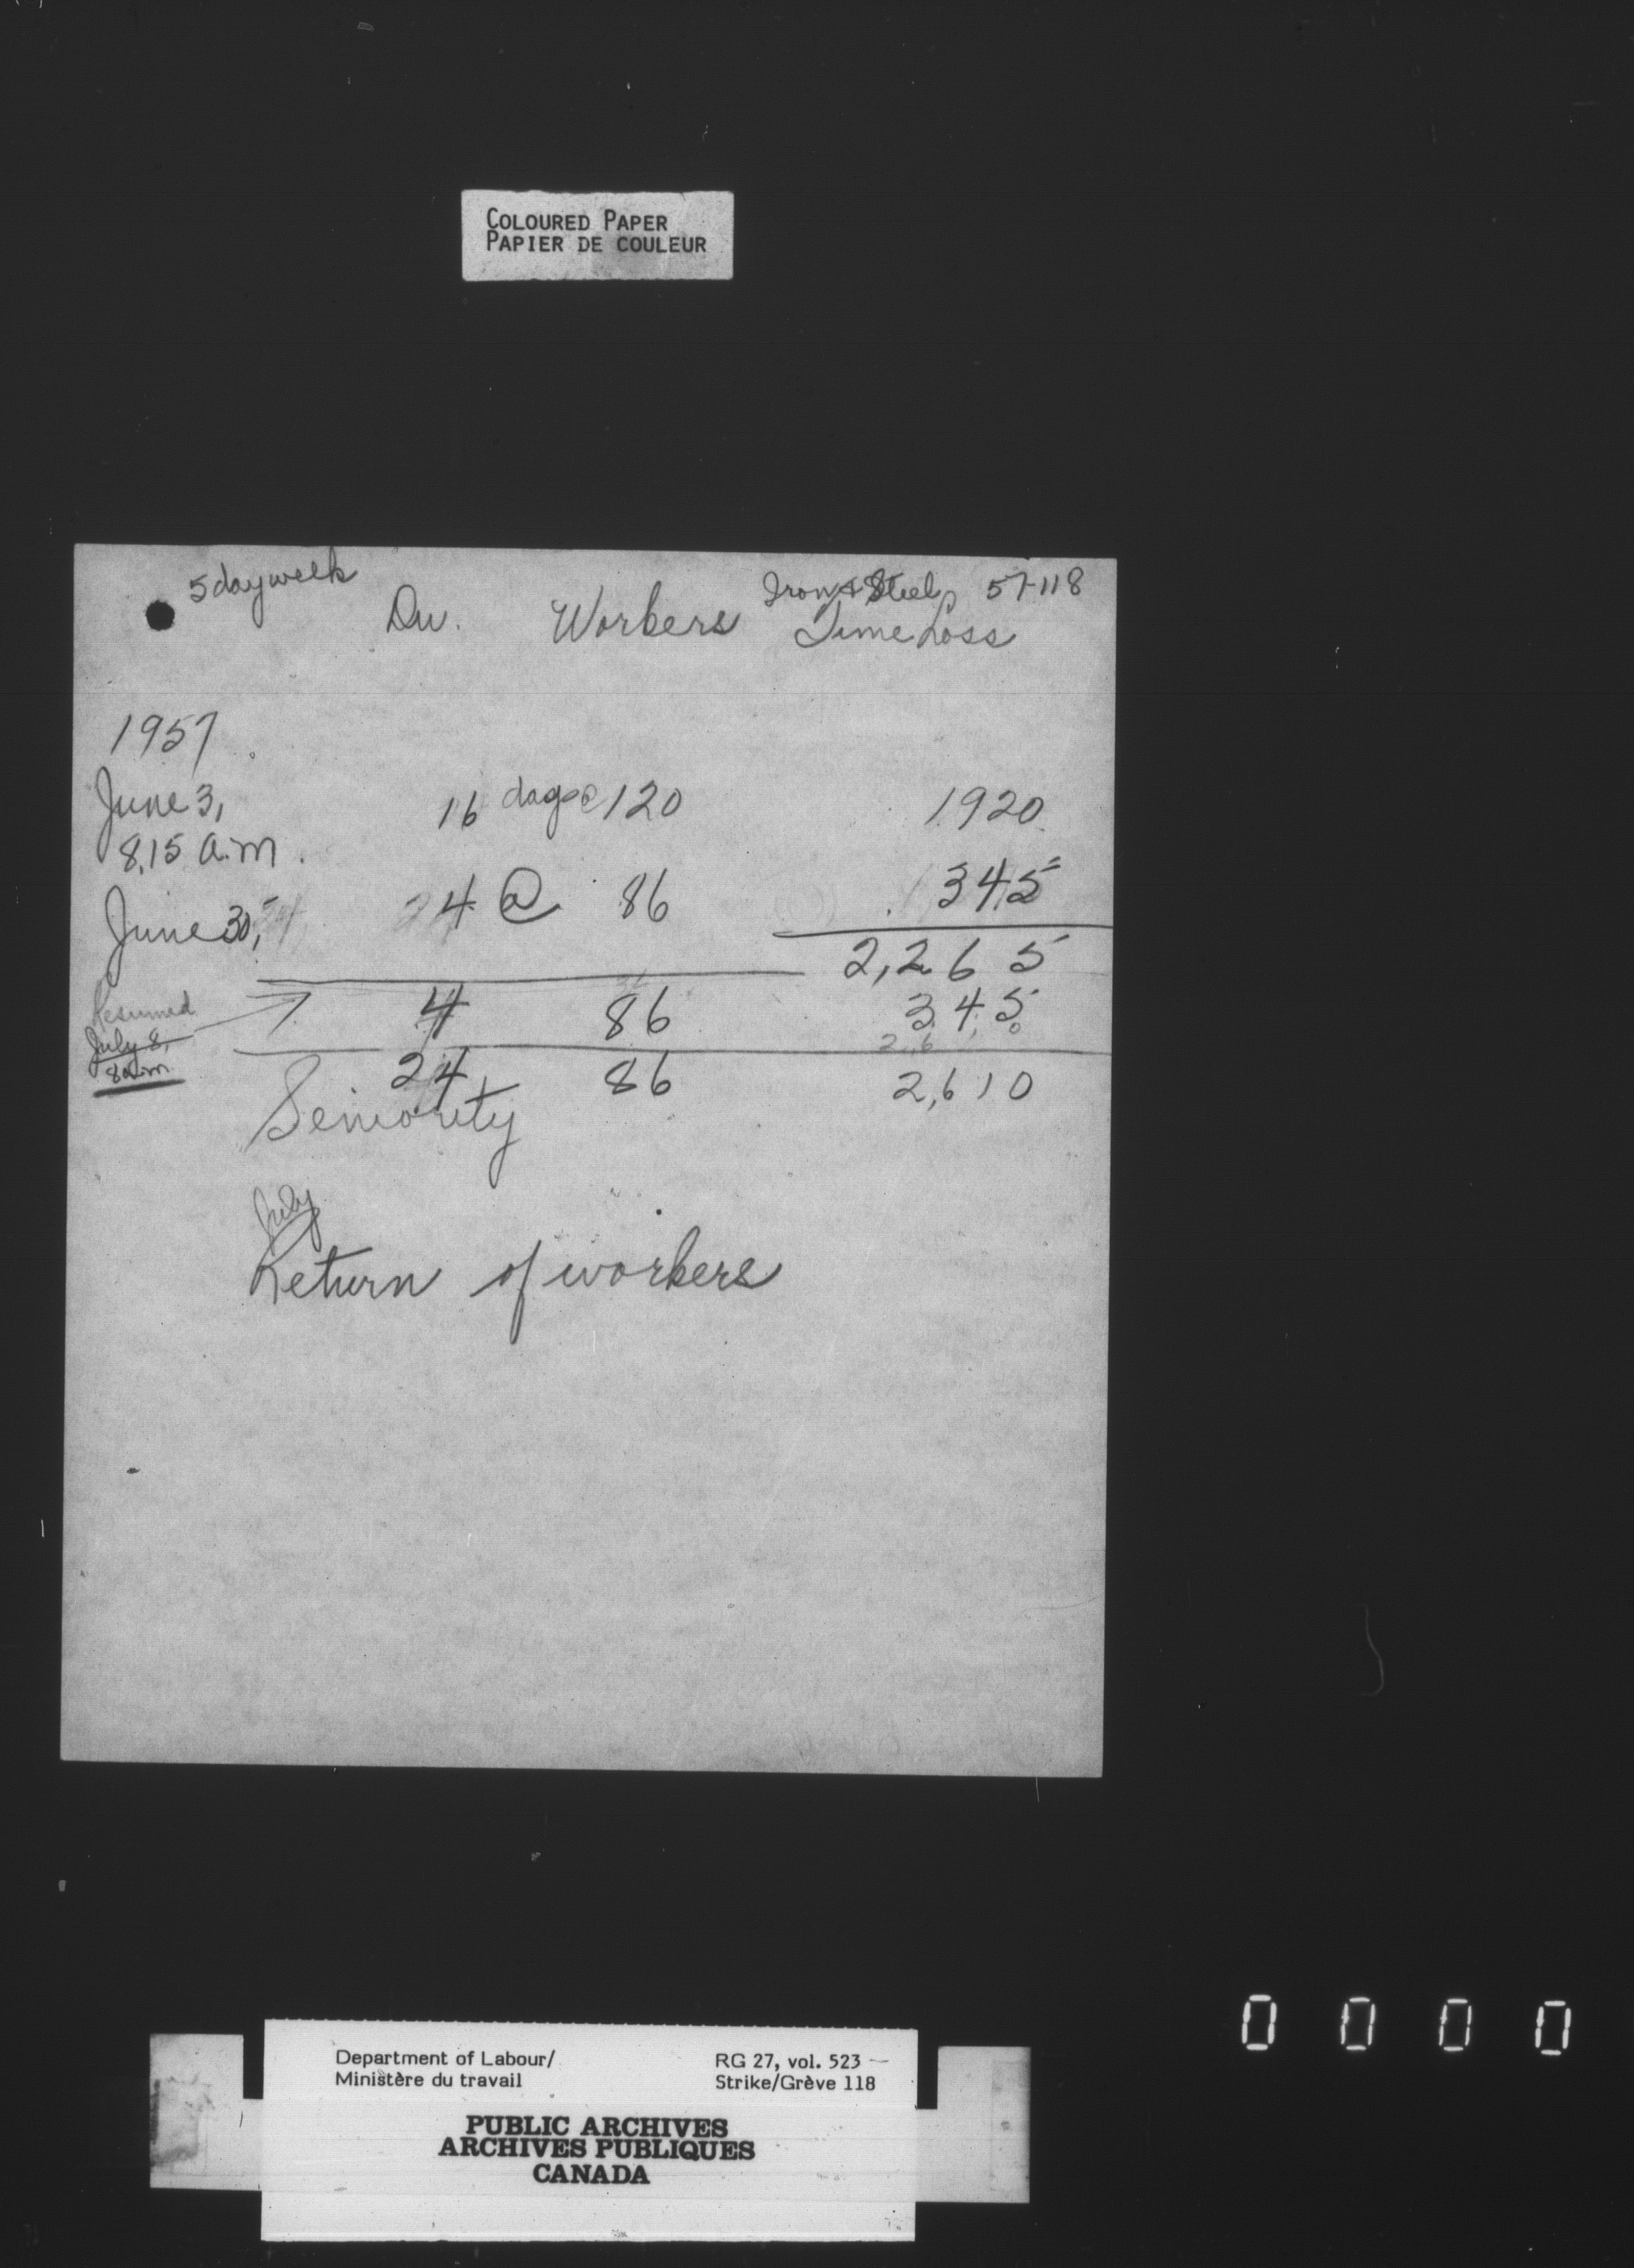 COLOURED PAPER
PAPIER DE COULEUR
5 day week
Iron & Steel 57-118
Du. Workers Time Loss
1957
June 3, 16 days @ 120 1920
8.15 a.m.
June 30, 4 @ 86 345
2,265
Resumed 4 86 345
July 8,
8 a.m. 24 86 2,610
Seniority
July
Return of workers
0 0 0 0
Department of Labour/ RG 27, vol. 523 —
Ministère du travail Strike/Grève 118
PUBLIC ARCHIVES
ARCHIVES PUBLIQUES
CANADA